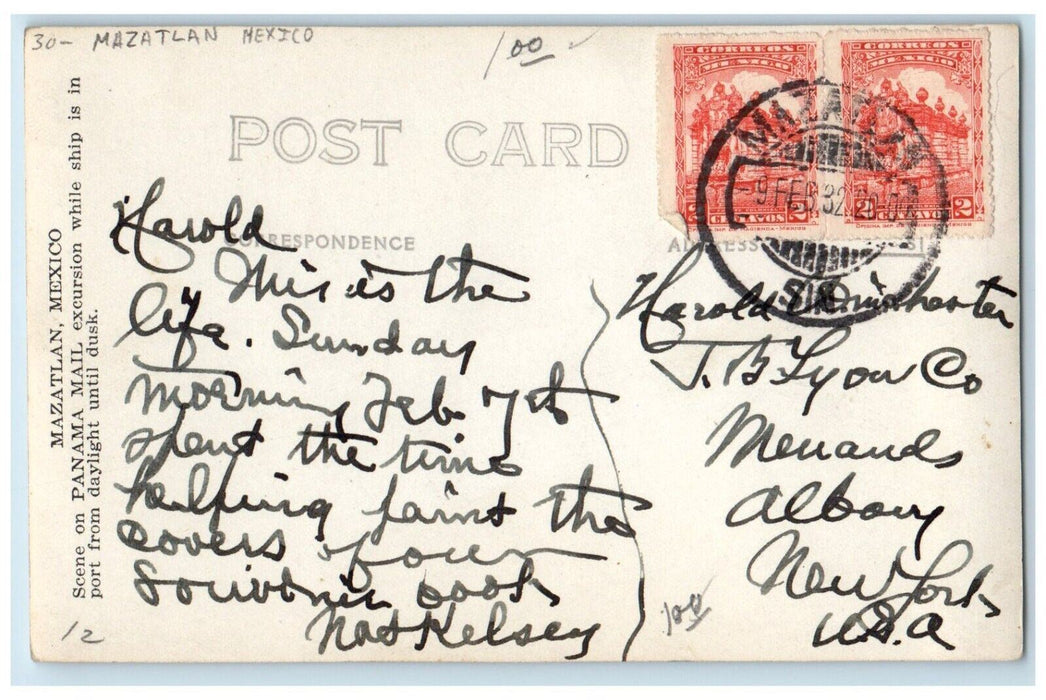 30- MAZATLAN MEXICO
1.00
POST CARD
CORREOS CORREOS
MEXICO MEXICO
2 CENTAVOS 2
2 CENTAVOS 2
MAZATLAN
-9 FEB 32
SIN.
CORRESPONDENCE
ADDRESS
MAZATLAN, MEXICO
Scene on PANAMA MAIL excursion while ship is in
port from daylight until dusk.
Harold
This is the
life. Sunday
morning Feb 7th
spent the time
helping paint the
covers of our
Souvenir book
Nat Kelsey
Harold
T. B Lyon Co
Menands
Albany
New York
U.S.A
1.00
12